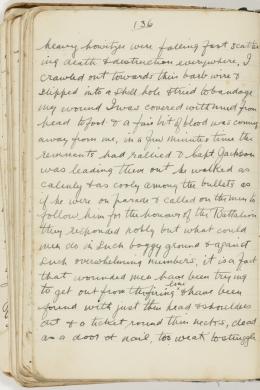 136
heavy howitzers were falling fast scatter
ing death & destruction everywhere, I
crawled out towards their barb wire &
slipped into a shell hole & tried to bandage
my wound I was covered with mud from
head to foot & a fair bit of blood was coming
away from me, in a few minutes time the
remnants had rallied & Capt Jackson
was leading them out he walked as
calmly & as cooly among the bullets as
if he were on parade & called on the men to
follow him for the honour of the Battalion
they responded nobly but what could
men do in such boggy ground & against
such overwhelming numbers, it is a fact
that wounded men have been trying
to get out from the firing line & have been
found with just their head & shoulders
out & a ticket round their necks, dead
as a door nail, too weak to struggle